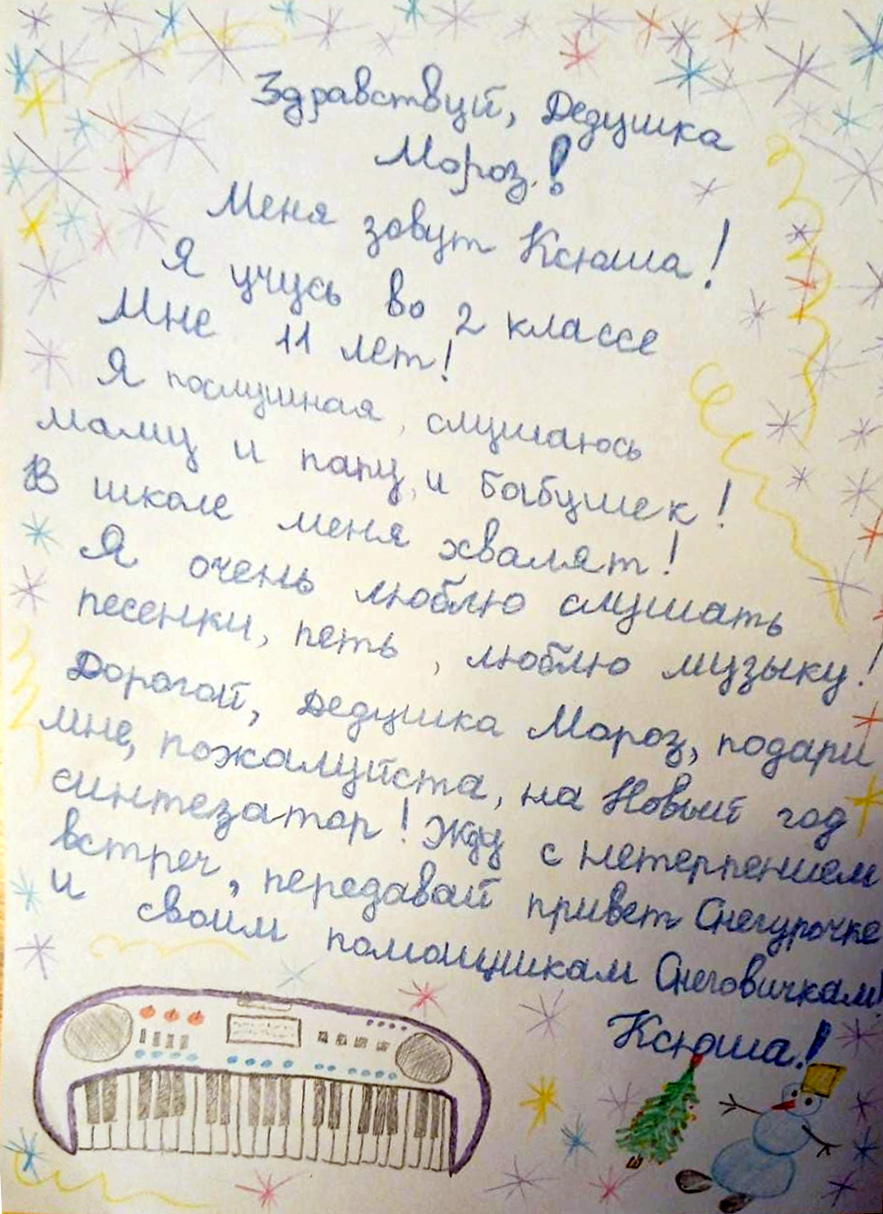 Здравствуй, Дедушка
Мороз!
Меня зовут Ксюша!
Я учусь во 2 классе
Мне 11 лет!
Я послушная, слушаюсь
маму и папу, и бабушек!
В школе меня хвалят!
Я очень люблю слушать
песенки, петь, люблю музыку!
Дорогой, Дедушка Мороз, подари
мне, пожалуйста, на Новый год
синтезатор! Жду с нетерпением
встреч, передавай привет Снегурочке
и своим помощникам Снеговичкам!
Ксюша!